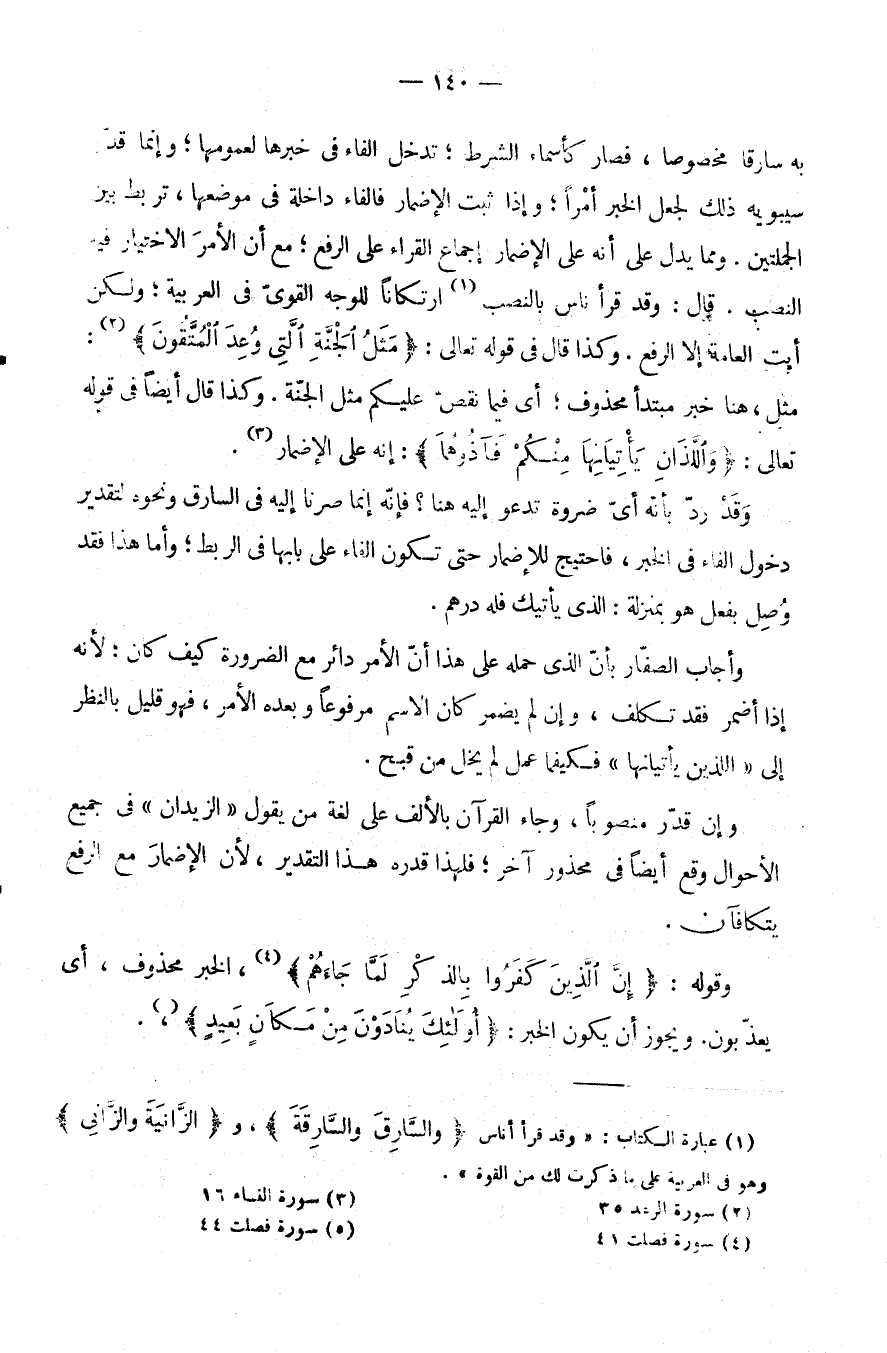 — ١٤٠ —
به سارقا مخصوصا ، فصار كأسماء الشرط ؛ تدخل الفاء فى خبرها لعمومها ؛ وإنما قدّ
سيبويه ذلك لجعل الخبر أمْراً ؛ وإذا ثبت الإضمار فالفاء داخلة فى موضعها ، تربط بين
الجملتين . ومما يدل على أنه على الإضمار إجماع القراء على الرفع ؛ مع أن الأمرَ الاختيار فيه
النصب . قال : وقد قرأ ناس بالنصب (١) ارتكاناً للوجه القوىّ فى العربية ؛ ولكن
أبت العامة إلا الرفع . وكذا قال فى قوله تعالى : ﴿ مَثَلُ ٱلْجَنَّةِ ٱلَّتِي وُعِدَ ٱلْمُتَّقُونَ ﴾ (٢) :
مثل ، هنا خبر مبتدأ محذوف ؛ أى فيما نقصّ عليكم مثل الجنّة . وكذا قال أيضاً فى قوله
تعالى : ﴿ وَٱللَّذَانِ يَأْتِيَانِهَا مِنْكُمْ فَآذُوهُمَا ﴾ : إنه على الإضمار (٣) .
وَقَدْ ردّ بأنّه أىّ ضروة تدعو إليه هنا ؟ فإنّه إنما صرنا إليه فى السارق ونحوه لتقدير
دخول الفاء فى الخبر ، فاحتيج للإضمار حتى تكون الفاء على بابها فى الربط ؛ وأما هذا فقد
وُصِل بفعل هو بمنزلة : الذى يأتيك فله درهم .
وأجاب الصفّار بأنّ الذى حمله على هذا أنّ الأمر دائر مع الضرورة كيف كان : لأنه
إذا أضمر فقد تكلف ، وإن لم يضمر كان الاسم مرفوعاً وبعده الأمر ، فهو قليل بالنظر
إلى « اللذين يأتيانها » فكيفما عمل لم يخل من قبح .
وإن قدّر منصوباً ، وجاء القرآن بالألف على لغة من يقول « الزيدان » فى جميع
الأحوال وقع أيضاً فى محذور آخر ؛ فلهذا قدره هذا التقدير ، لأن الإضمارَ مع الرفع
يتكافآن .
وقوله : ﴿ إِنَّ ٱلَّذِينَ كَفَرُوا بِالذِكْرِ لَمَّا جَاءَهُمْ ﴾ (٤) ، الخبر محذوف ، أى
يعذّبون. ويجوز أن يكون الخبر : ﴿ أُولَٰئِكَ يُنَادَوْنَ مِنْ مَكَانٍ بَعِيدٍ ﴾ .
(١) عبارة الكتاب : « وقد قرأ أناس ﴿ والسَّارِقَ والسَّارِقَةَ ﴾ ، و ﴿ الزَّانِيَةَ والزَّانِي ﴾
وهو فى العربية على ما ذكرت لك من القوة » .
(٢) سورة الرعد ٣٥ (٣) سورة النساء ١٦
(٤) سورة فصلت ٤١ (٥) سورة فصلت ٤٤